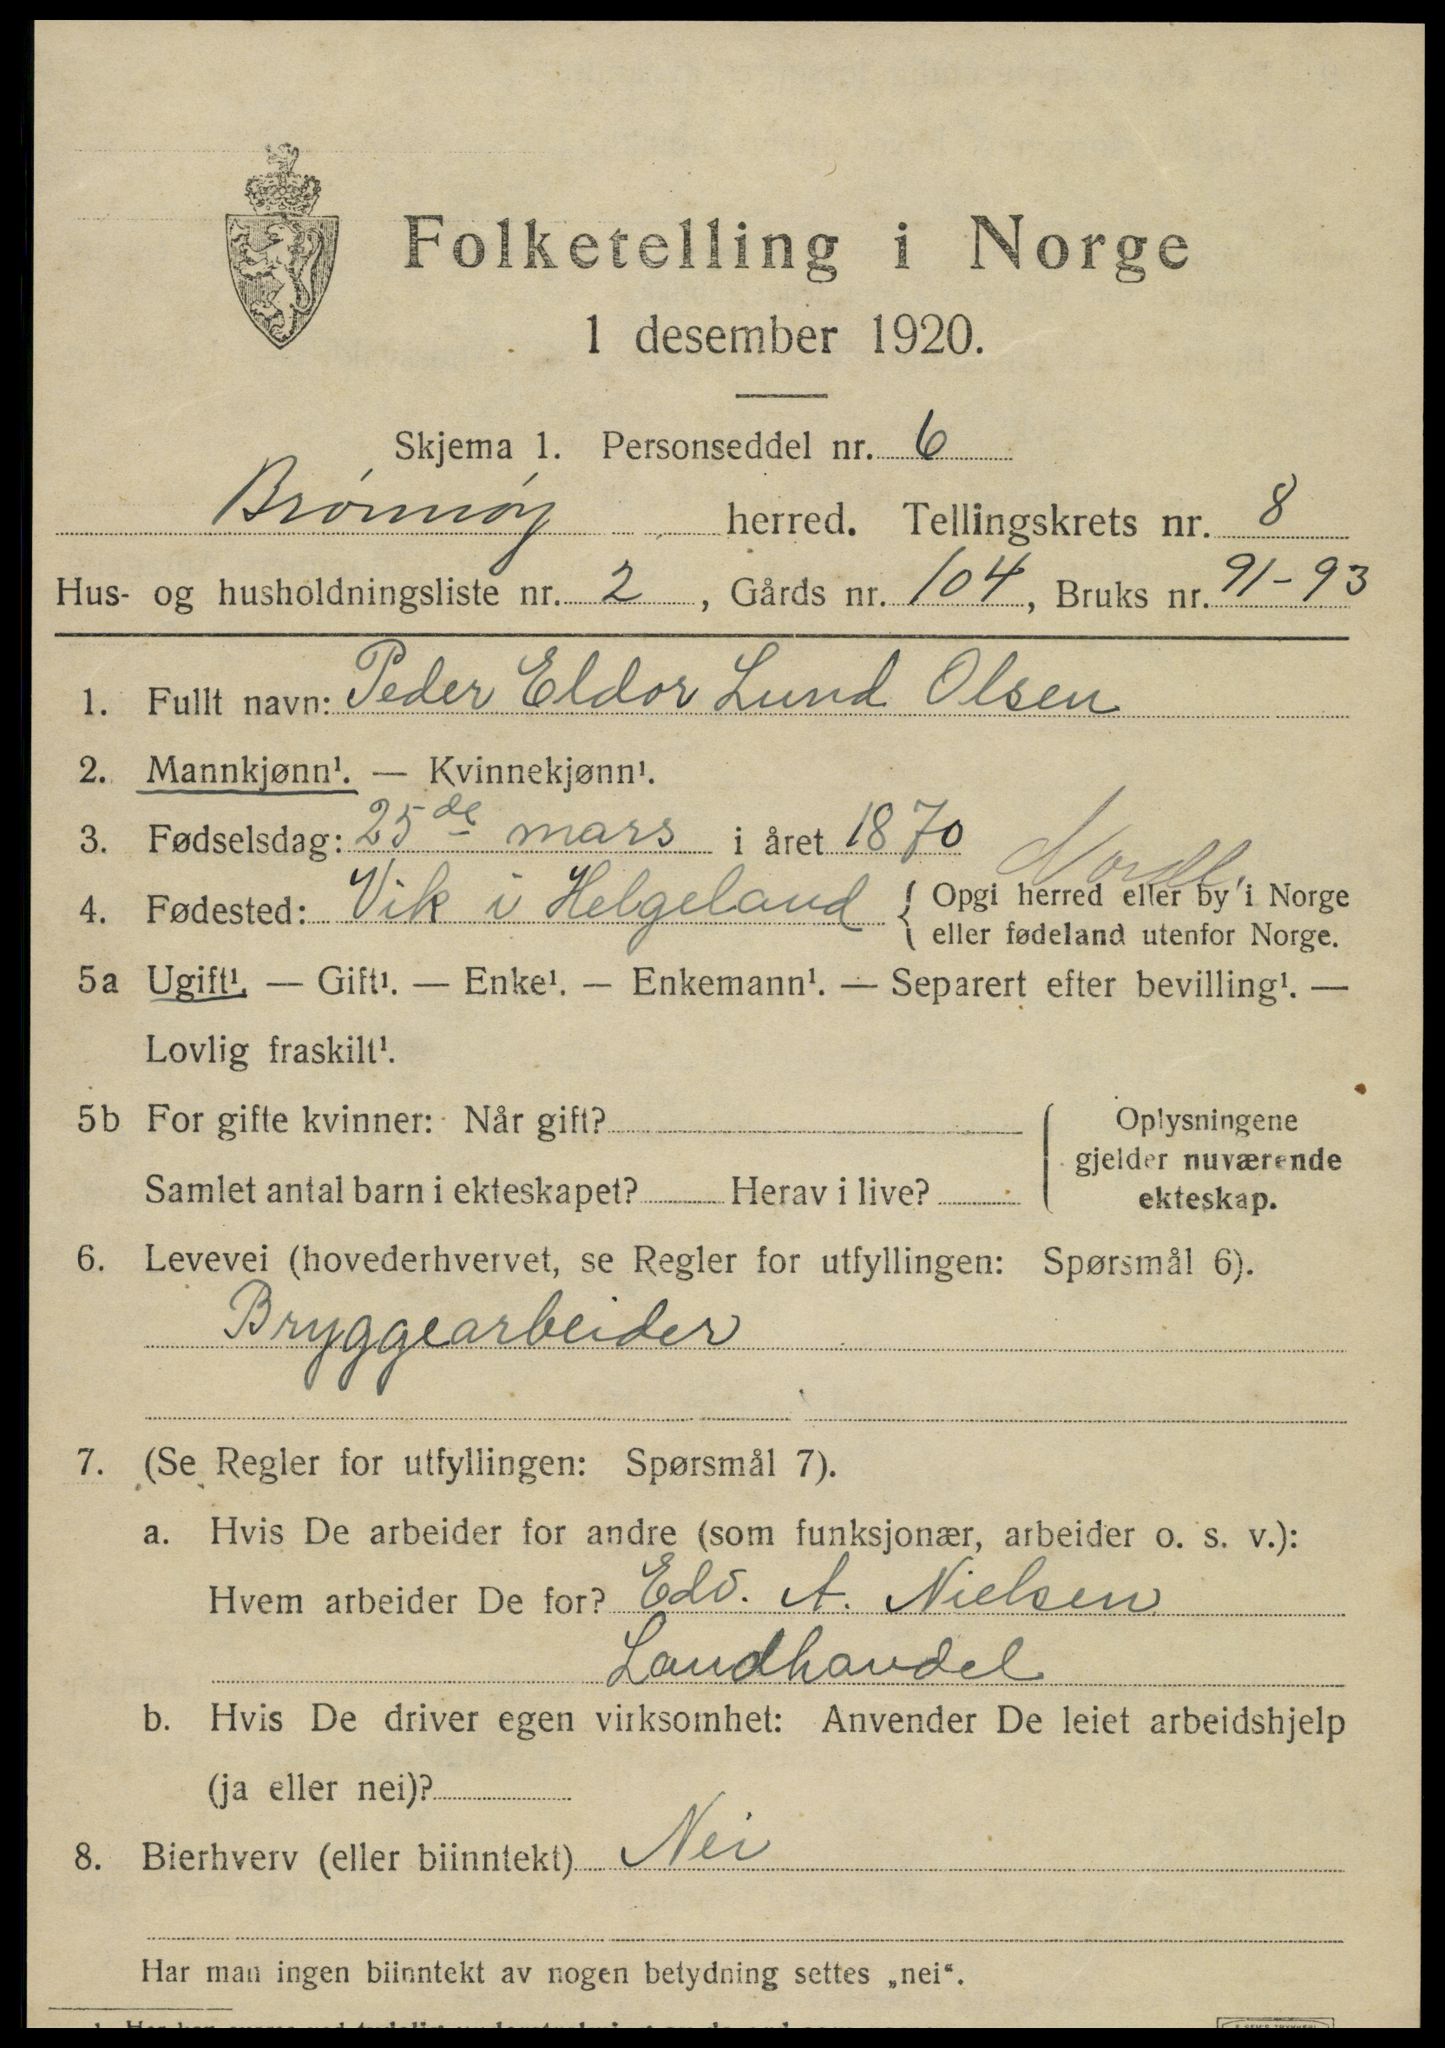 Folketelling i Norge
1 desember 1920.
Skjema 1. Personseddel nr. 6
Brönnöy herred. Tellingskrets nr. 8
Hus- og husholdningsliste nr. 2, Gårds nr. 104, Bruks nr. 91-93
1. Fullt navn: Peder Eldor Lund Olsen
2. Mannkjønn¹. — Kvinnekjønn¹.
3. Fødselsdag: 25de mars i året 1870
Nordl.
4. Fødested: Vik i Helgeland { Opgi herred eller by i Norge
eller fødeland utenfor Norge.
5a Ugift¹. — Gift¹. — Enke¹. — Enkemann¹. — Separert efter bevilling¹. —
Lovlig fraskilt¹.
5b For gifte kvinner: Når gift?
Samlet antal barn i ekteskapet? Herav i live?
Oplysningene
gjelder nuværende
ekteskap.
6. Levevei (hovederhvervet, se Regler for utfyllingen: Spørsmål 6).
Bryggearbeider
7. (Se Regler for utfyllingen: Spørsmål 7).
a. Hvis De arbeider for andre (som funksjonær, arbeider o. s. v.):
Hvem arbeider De for? Edv. A. Nielsen
Landhandel
b. Hvis De driver egen virksomhet: Anvender De leiet arbeidshjelp
(ja eller nei)?
8. Bierhverv (eller biinntekt) Nei
Har man ingen biinntekt av nogen betydning settes „nei“.